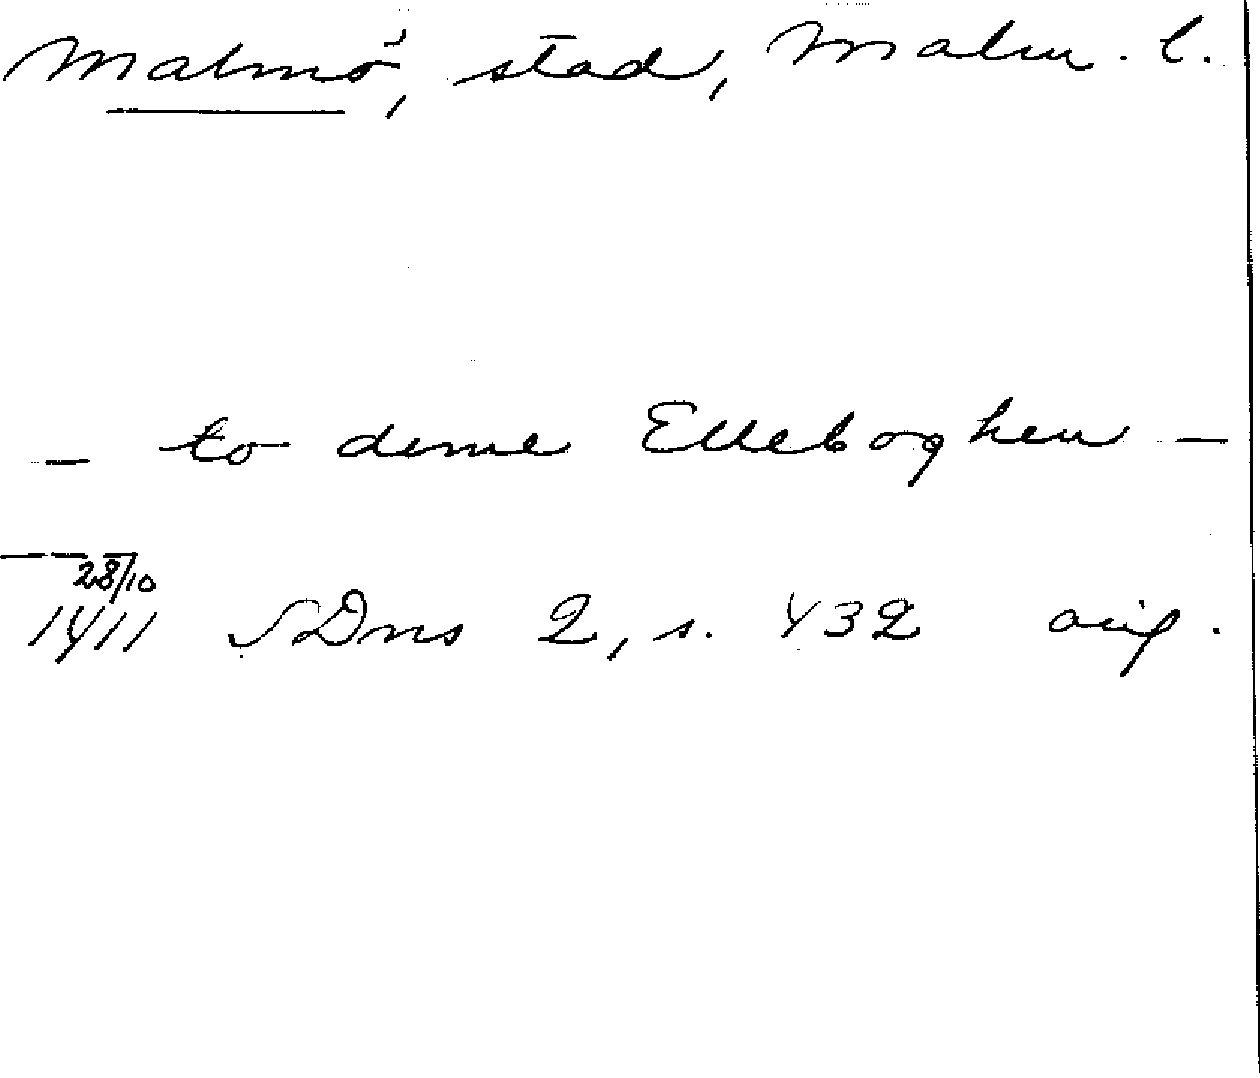 Malmö, stad, Malm. l.
– to deme Elleboghen –
– – –
28/10
1411 SDns 2, s. 432 orig.